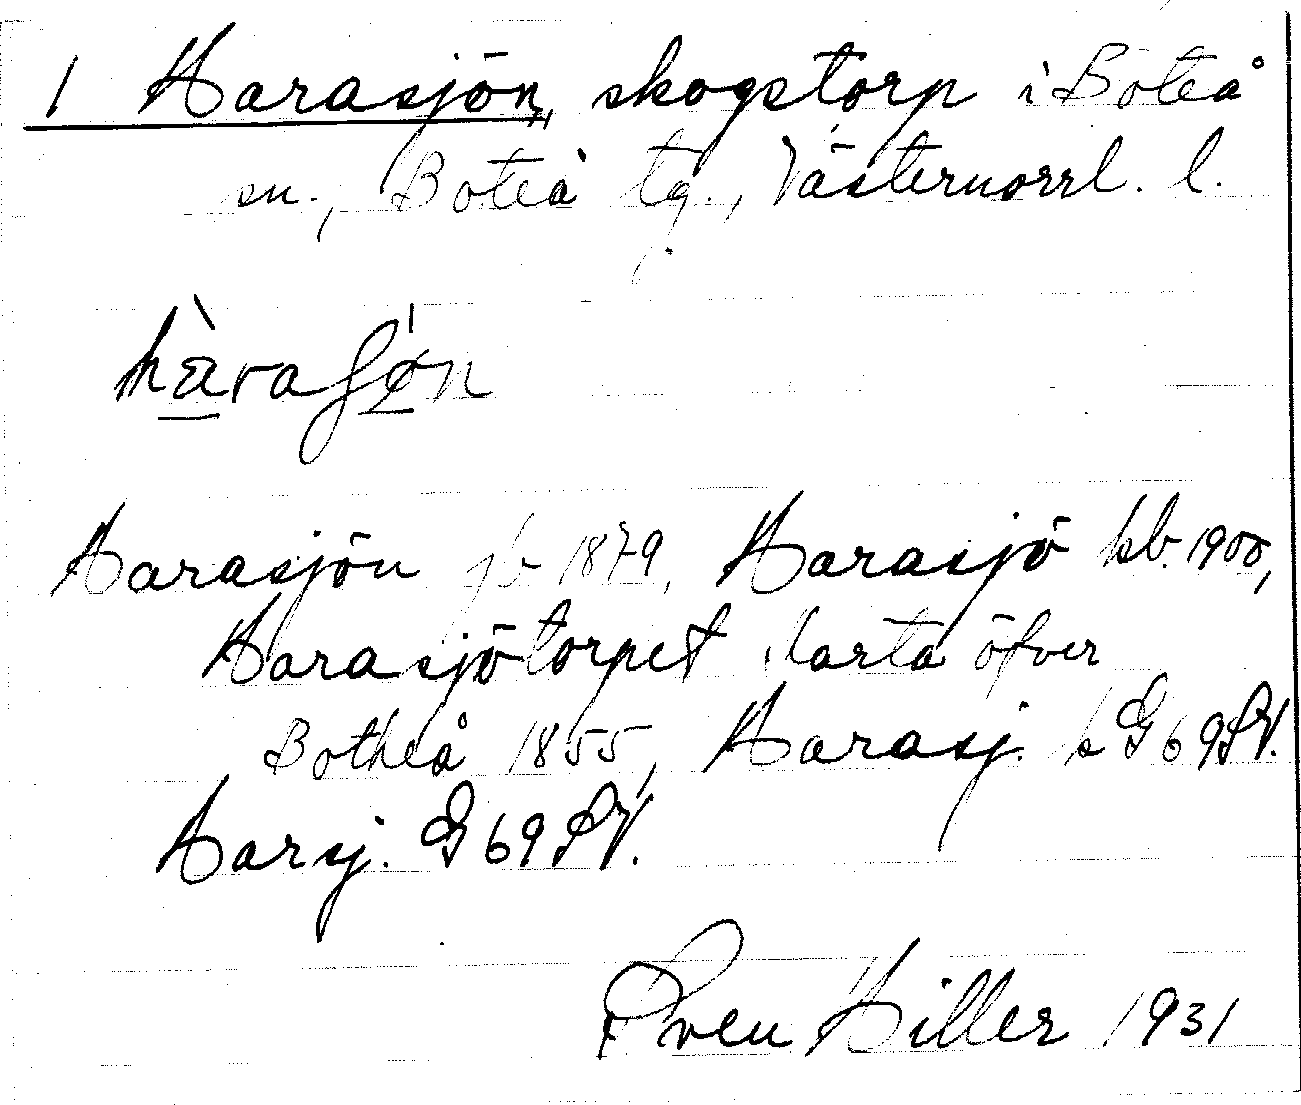 1 Harasjön, skogstorp i Boteå
sn., Boteå tg., Västernorrl. l.
hàraʃǿn
Harasjön jb 1879, Harasjö hb. 1900,
Harasjötorpet Karta öfver
Botheå 1855, Harasj. k G69SV.
Harsj. G69SV.
Sven Hiller 1931